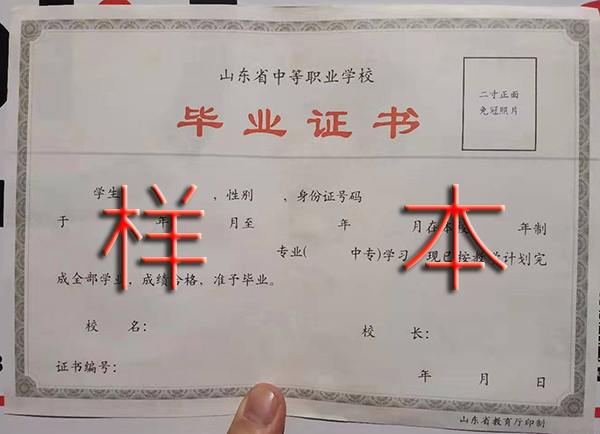 山东省中等职业学校
毕业证书
二寸正面
免冠照片
学生 ，性别 ，身份证号码
于 年 月至 年 月在本校 年制
专业( 中专)学习，现已按教学计划完
成全部学业，成绩合格，准予毕业。
样本
校 名： 校 长：
证书编号： 年 月 日
山东省教育厅印制